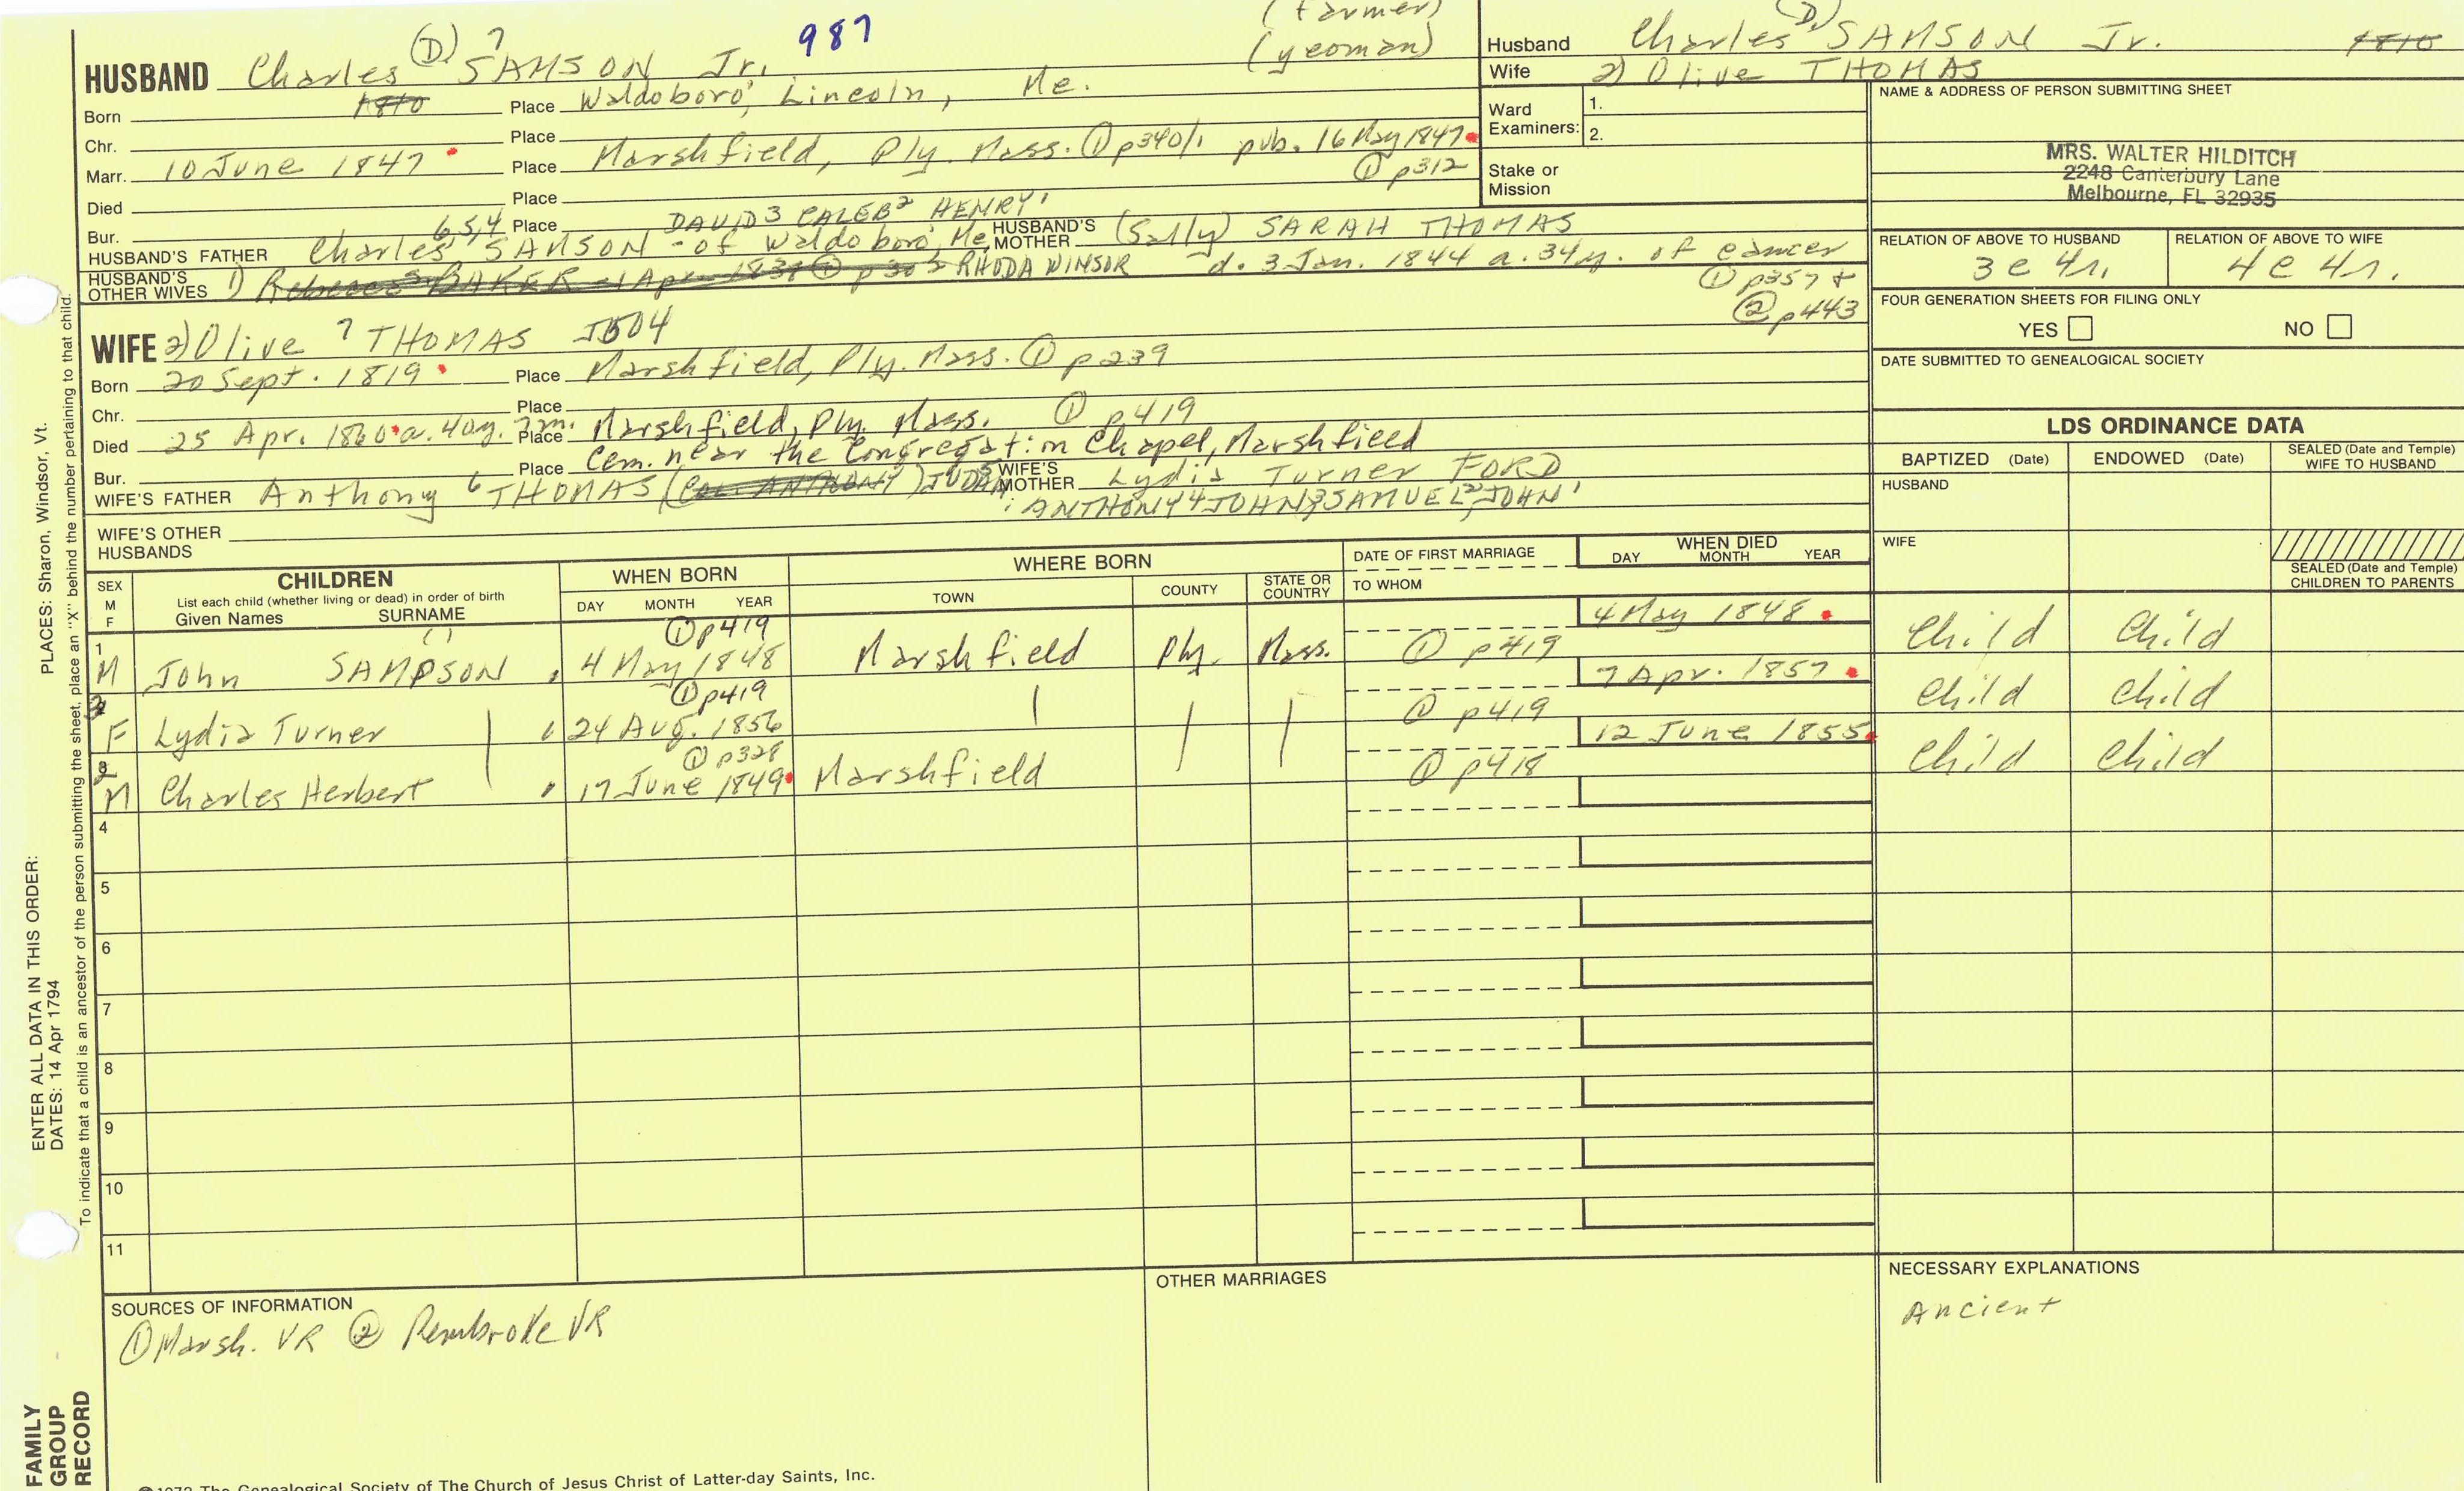 987
(Farmer)
(yeoman)
HUSBAND Charles (D.) 7 SAMSON Jr.
Born 1810 Place Waldoboro, Lincoln, Me.
Chr. Place
Marr. 10 June 1847 Place Marshfield, Ply. Mass. ① p340/1 pub. 16 May 1847
① p312
Died Place
Bur. Place
6 5,4 DAVID3 CALEB2 HENRY1
HUSBAND'S FATHER Charles SAMSON - of Waldoboro, Me. HUSBAND'S MOTHER (Sally) SARAH THOMAS
HUSBAND'S OTHER WIVES 1) RHODA WINSOR d. 3 Jan. 1844 a. 34y. of cancer
① p357 +
② p443
WIFE 2) Olive 7 THOMAS
Born 20 Sept. 1819 Place Marshfield, Ply. Mass. ① p239
Chr. Place
Died 25 Apr. 1860 a. 40y. 7m. Place Marshfield, Ply. Mass. ① p419
Bur. Place Cem. near the Congregation Chapel, Marshfield
WIFE'S FATHER Anthony 6 THOMAS (COL. ANTHONY) JUDAH5 WIFE'S MOTHER Lydia Turner FORD
: ANTHONY4 JOHN3 SAMUEL2, JOHN1
WIFE'S OTHER HUSBANDS
Husband Charles (D.) SAMSON Jr. 1810
Wife 2) Olive THOMAS
Ward Examiners: 1.
2.
Stake or Mission
NAME & ADDRESS OF PERSON SUBMITTING SHEET
MRS. WALTER HILDITCH
2248 Canterbury Lane
Melbourne, FL 32935
RELATION OF ABOVE TO HUSBAND RELATION OF ABOVE TO WIFE
3c 4r. 4c 4r.
FOUR GENERATION SHEETS FOR FILING ONLY
YES NO
DATE SUBMITTED TO GENEALOGICAL SOCIETY
LDS ORDINANCE DATA
BAPTIZED (Date) ENDOWED (Date) SEALED (Date and Temple) WIFE TO HUSBAND
HUSBAND
WIFE
SEALED (Date and Temple) CHILDREN TO PARENTS
SEX M F
CHILDREN
List each child (whether living or dead) in order of birth
Given Names SURNAME
WHEN BORN
DAY MONTH YEAR
WHERE BORN
TOWN COUNTY STATE OR COUNTRY
DATE OF FIRST MARRIAGE
TO WHOM
WHEN DIED
DAY MONTH YEAR
1 M John SAMPSON 4 May 1848 ① p419 Marshfield Ply. Mass. ① p419 4 May 1848 Child Child
3 F Lydia Turner 24 Aug. 1856 ① p419 ① p419 7 Apr. 1857 Child Child
2 M Charles Herbert 17 June 1849 ① p328 Marshfield ① p418 12 June 1855 Child Child
4
5
6
7
8
9
10
11
SOURCES OF INFORMATION
① Marsh. VR ② Pembroke VR
OTHER MARRIAGES
NECESSARY EXPLANATIONS
Ancient
ENTER ALL DATA IN THIS ORDER:
DATES: 14 Apr 1794
PLACES: Sharon, Windsor, Vt.
To indicate that a child is an ancestor of the person submitting the sheet, place an "X" behind the number pertaining to that child.
FAMILY
GROUP
RECORD
The Genealogical Society of The Church of Jesus Christ of Latter-day Saints, Inc.